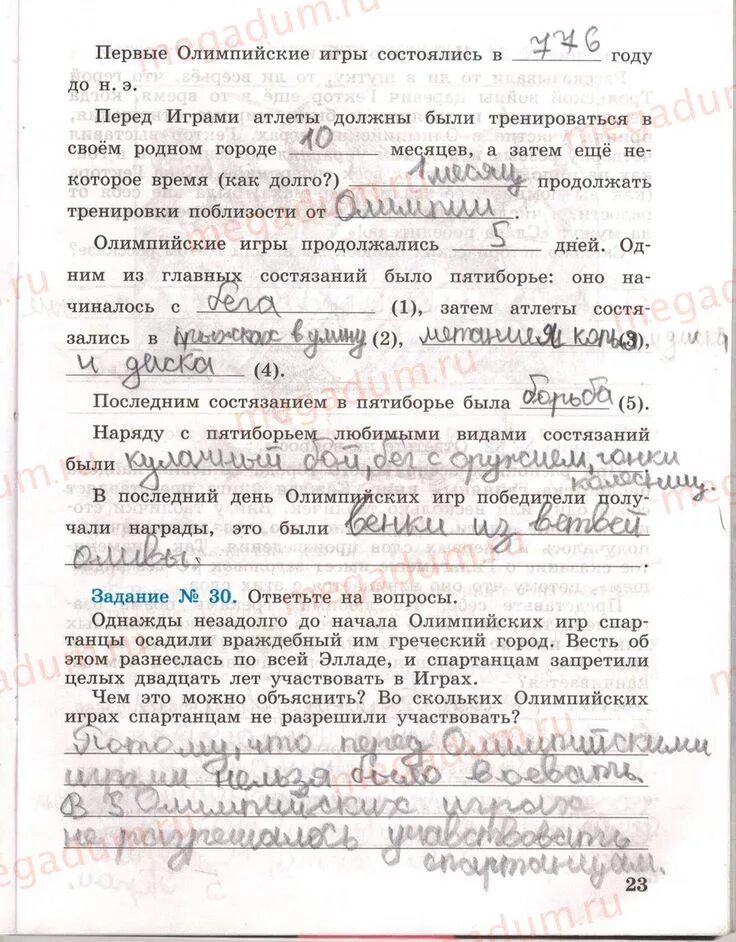 Первые Олимпийские игры состоялись в 776 году
до н. э.
Перед Играми атлеты должны были тренироваться в
своём родном городе 10 месяцев, а затем ещё не-
которое время (как долго?) 1 месяц продолжать
тренировки поблизости от Олимпии.
Олимпийские игры продолжались 5 дней. Од-
ним из главных состязаний было пятиборье: оно на-
чиналось с бега (1), затем атлеты состя-
зались в прыжках в длину (2), метания копья (3),
и диска (4).
Последним состязанием в пятиборье была борьба (5).
Наряду с пятиборьем любимыми видами состязаний
были кулачный бой, бег с оружием, гонки
колесниц.
В последний день Олимпийских игр победители полу-
чали награды, это были венки из ветвей
оливы.
Задание № 30. Ответьте на вопросы.
Однажды незадолго до начала Олимпийских игр спар-
танцы осадили враждебный им греческий город. Весть об
этом разнеслась по всей Элладе, и спартанцам запретили
целых двадцать лет участвовать в Играх.
Чем это можно объяснить? Во скольких Олимпийских
играх спартанцам не разрешили участвовать?
Потому, что перед Олимпийскими
играми нельзя было воевать.
В 5 Олимпийских играх
не разрешалось учавствовать
спартанцам.
23
megadum.ru